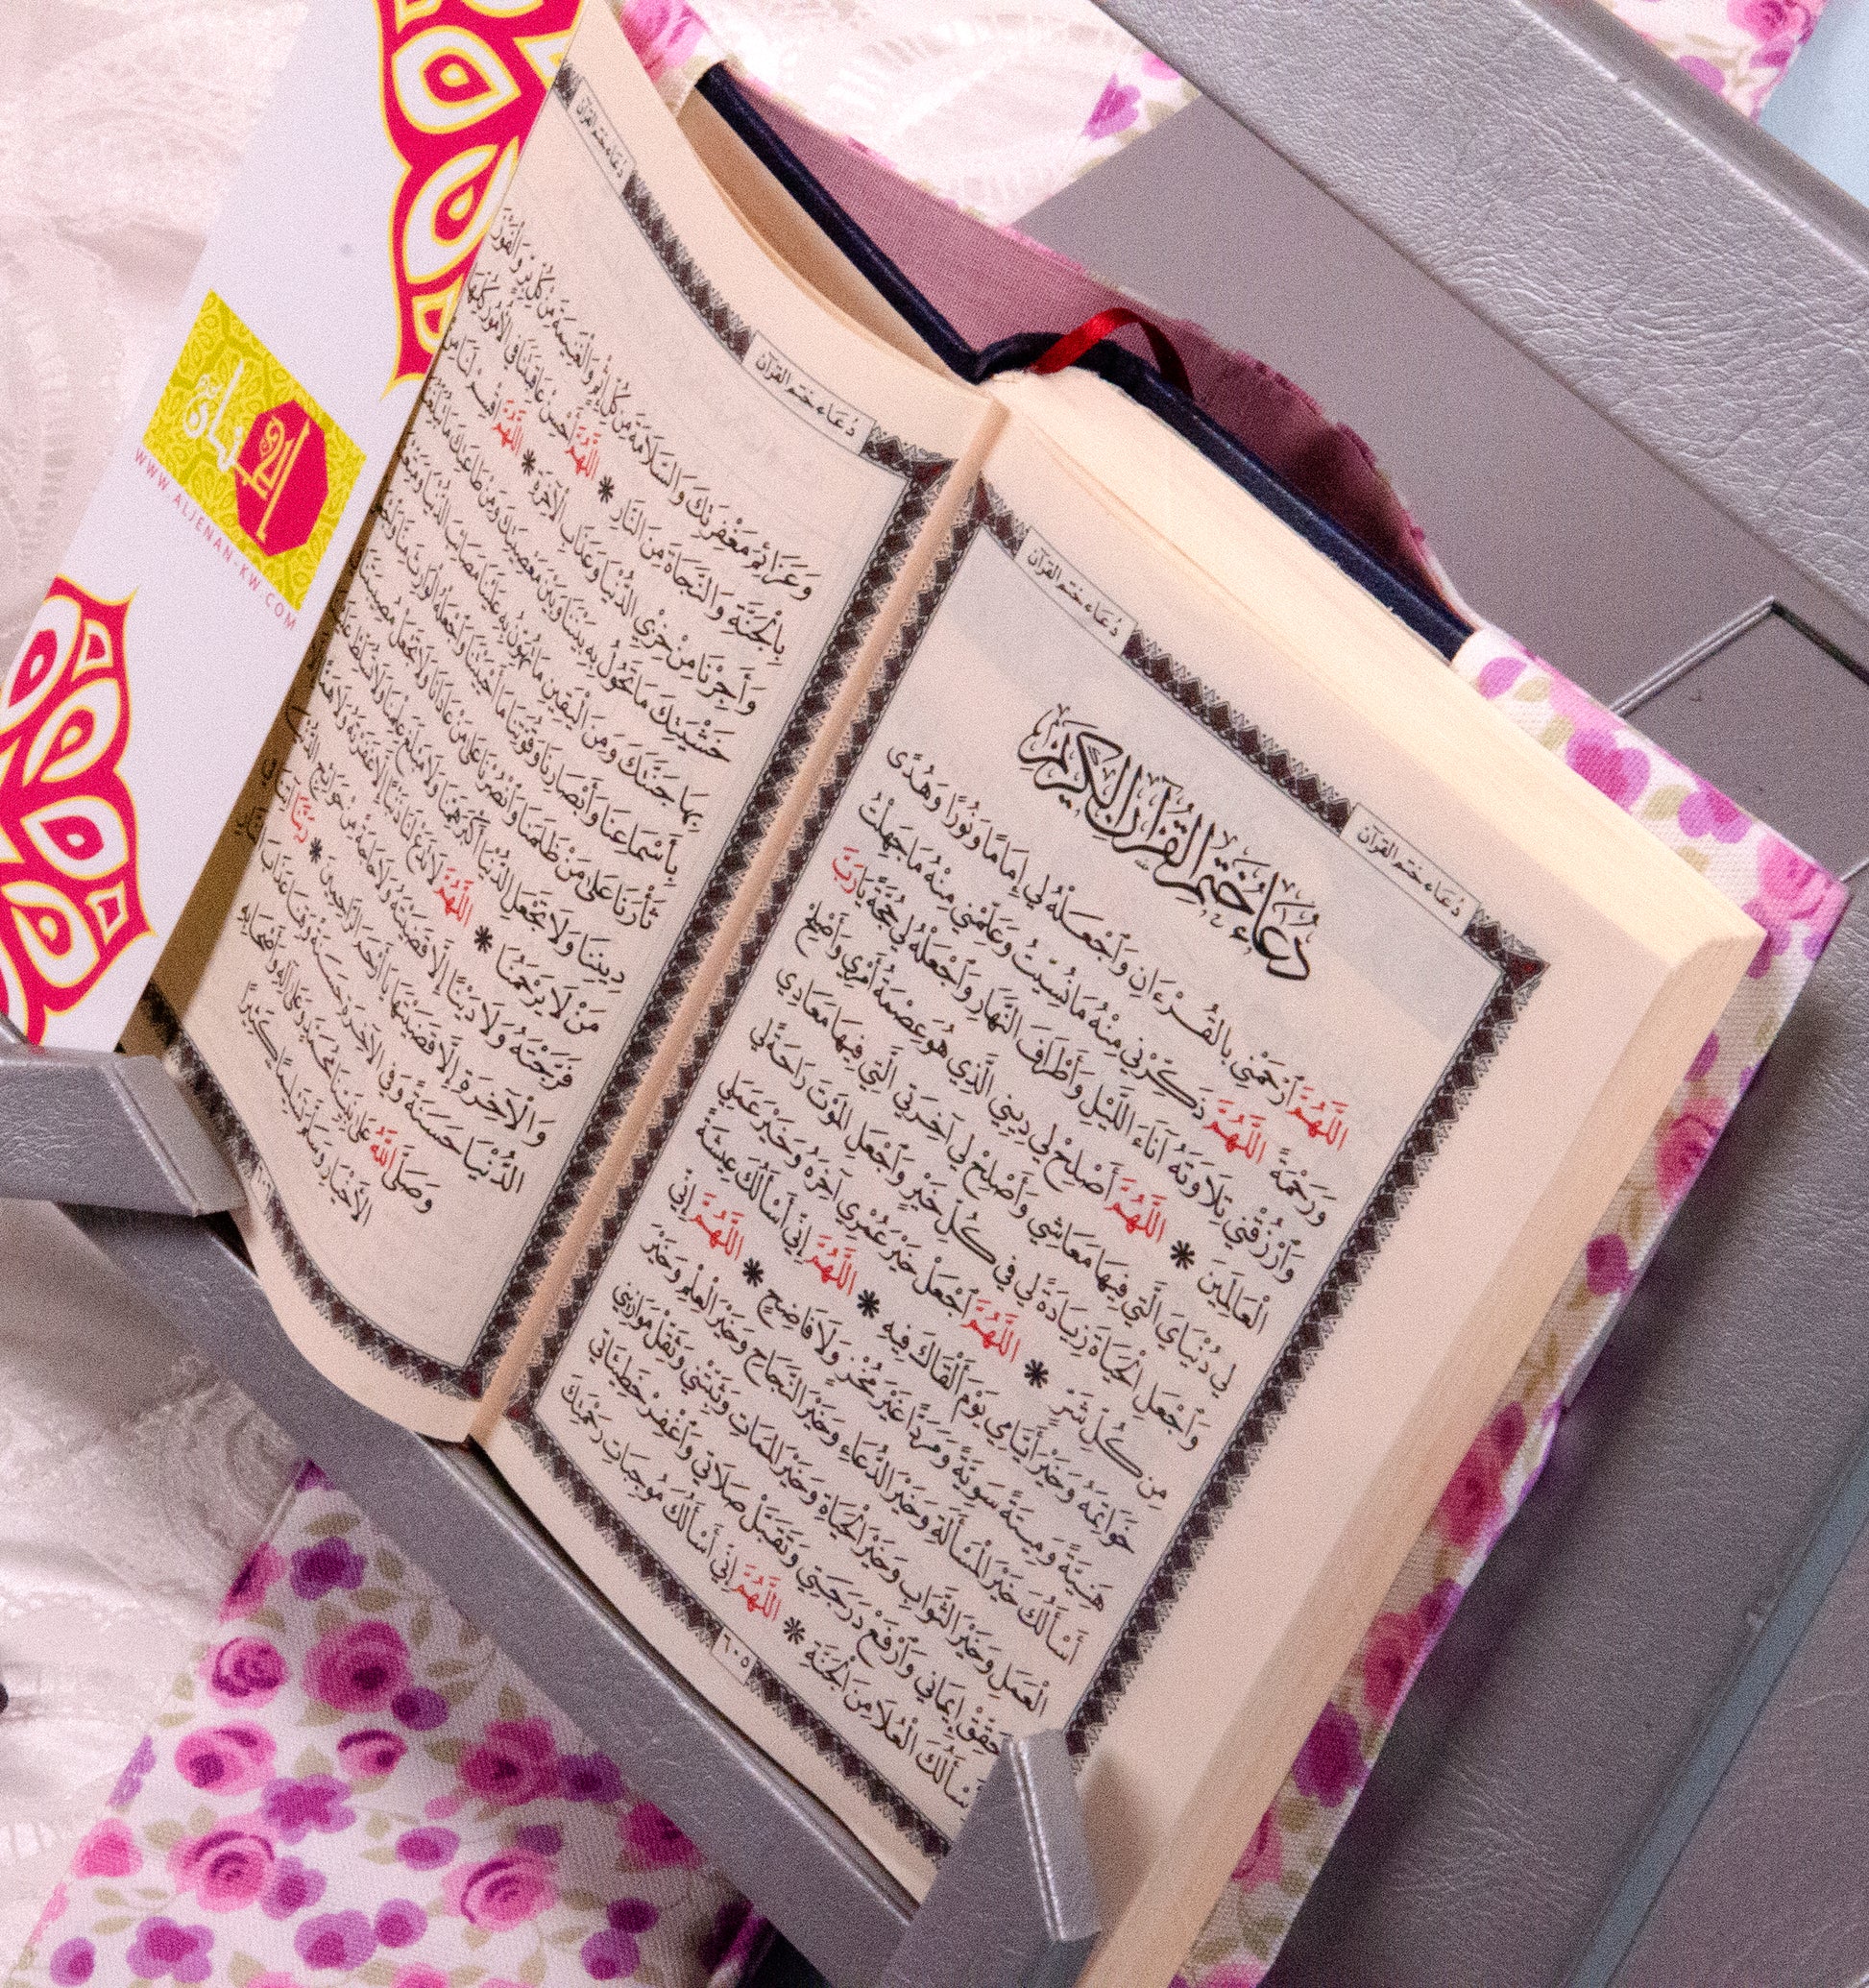 دُعَاء خَتْم القُرْآن
دُعَاء خَتْم القُرْآن
دُعَاءُ خَتْمِ الْقُرْآنِ الْكَرِيمِ
اللَّهُمَّ ٱرْحَمْنِي بِالْقُرْءَانِ وَٱجْعَلْهُ لِي إِمَامًا وَنُورًا وَهُدًى
وَرَحْمَةً اللَّهُمَّ ذَكِّرْنِي مِنْهُ مَا نُسِّيتُ وَعَلِّمْنِي مِنْهُ مَا جَهِلْتُ
وَٱرْزُقْنِي تِلَاوَتَهُ آنَاءَ اللَّيْلِ وَأَطْرَافَ النَّهَارِ وَٱجْعَلْهُ لِي حُجَّةً يَارَبَّ
الْعَالَمِينَ * اللَّهُمَّ أَصْلِحْ لِي دِينِي الَّذِي هُوَ عِصْمَةُ أَمْرِي وَأَصْلِحْ
لِي دُنْيَايَ الَّتِي فِيهَا مَعَاشِي وَأَصْلِحْ لِي آخِرَتِي الَّتِي فِيهَا مَعَادِي
وَٱجْعَلِ الْحَيَاةَ زِيَادَةً لِي فِي كُلِّ خَيْرٍ وَٱجْعَلِ الْمَوْتَ رَاحَةً لِي
مِن كُلِّ شَرٍّ * اللَّهُمَّ ٱجْعَلْ خَيْرَ عُمْرِي آخِرَهُ وَخَيْرَ عَمَلِي
خَوَاتِمَهُ وَخَيْرَ أَيَّامِي يَوْمَ أَلْقَاكَ فِيهِ * اللَّهُمَّ إِنِّي أَسْأَلُكَ عِيشَةً
هَنِيَّةً وَمِيتَةً سَوِيَّةً وَمَرَدًّا غَيْرَ مُخْزٍ وَلَا فَاضِحٍ * اللَّهُمَّ إِنِّي
أَسْأَلُكَ خَيْرَ الْمَسْأَلَةِ وَخَيْرَ الدُّعَاءِ وَخَيْرَ النَّجَاحِ وَخَيْرَ الْعِلْمِ وَخَيْرَ
الْعَمَلِ وَخَيْرَ الثَّوَابِ وَخَيْرَ الْحَيَاةِ وَخَيْرَ الْمَمَاتِ وَثَبِّتْنِي وَثَقِّلْ مَوَازِينِي
وَحَقِّقْ إِيمَانِي وَٱرْفَعْ دَرَجَتِي وَتَقَبَّلْ صَلَاتِي وَٱغْفِرْ خَطِيئَاتِي
وَأَسْأَلُكَ الْعُلَا مِنَ الْجَنَّةِ * اللَّهُمَّ إِنِّي أَسْأَلُكَ مُوجِبَاتِ رَحْمَتِكَ
٦٠٥
دُعَاء خَتْم القُرْآن
دُعَاء خَتْم القُرْآن
وَعَزَائِمَ مَغْفِرَتِكَ وَالسَّلَامَةَ مِن كُلِّ إِثْمٍ وَالْغَنِيمَةَ مِن كُلِّ بِرٍّ وَالْفَوْزَ
بِالْجَنَّةِ وَالنَّجَاةَ مِنَ النَّارِ * اللَّهُمَّ أَحْسِنْ عَاقِبَتَنَا فِي الْأُمُورِ كُلِّهَا
وَأَجِرْنَا مِنْ خِزْيِ الدُّنْيَا وَعَذَابِ الْآخِرَةِ * اللَّهُمَّ ٱقْسِمْ لَنَا مِنْ
خَشْيَتِكَ مَا تَحُولُ بِهِ بَيْنَنَا وَبَيْنَ مَعْصِيَتِكَ وَمِنْ طَاعَتِكَ مَا تُبَلِّغُنَا
بِهَا جَنَّتَكَ وَمِنَ الْيَقِينِ مَا تُهَوِّنُ بِهِ عَلَيْنَا مَصَائِبَ الدُّنْيَا وَمَتِّعْنَا
بِأَسْمَاعِنَا وَأَبْصَارِنَا وَقُوَّتِنَا مَا أَحْيَيْتَنَا وَٱجْعَلْهُ الْوَارِثَ مِنَّا وَٱجْعَلْ
ثَأْرَنَا عَلَى مَنْ ظَلَمَنَا وَٱنْصُرْنَا عَلَى مَنْ عَادَانَا وَلَا تَجْعَلْ مُصِيبَتَنَا
دِينِنَا وَلَا تَجْعَلِ الدُّنْيَا أَكْبَرَ هَمِّنَا وَلَا مَبْلَغَ عِلْمِنَا وَلَا تُسَلِّطْ عَلَيْنَا
مَنْ لَا يَرْحَمُنَا * اللَّهُمَّ لَا تَدَعْ لَنَا ذَنْبًا إِلَّا غَفَرْتَهُ وَلَا هَمًّا
فَرَّجْتَهُ وَلَا دَيْنًا إِلَّا قَضَيْتَهُ وَلَا حَاجَةً مِنْ حَوَائِجِ الدُّنْيَا
وَالْآخِرَةِ إِلَّا قَضَيْتَهَا يَا أَرْحَمَ الرَّاحِمِينَ * رَبَّنَا آتِنَا
الدُّنْيَا حَسَنَةً وَفِي الْآخِرَةِ حَسَنَةً وَقِنَا عَذَابَ
وَصَلَّى اللَّهُ عَلَى نَبِيِّنَا مُحَمَّدٍ وَعَلَى آلِهِ وَأَصْحَابِهِ
الْأَخْيَارِ وَسَلَّمَ تَسْلِيمًا كَثِيرًا
WWW.ALJENAN-KW.COM